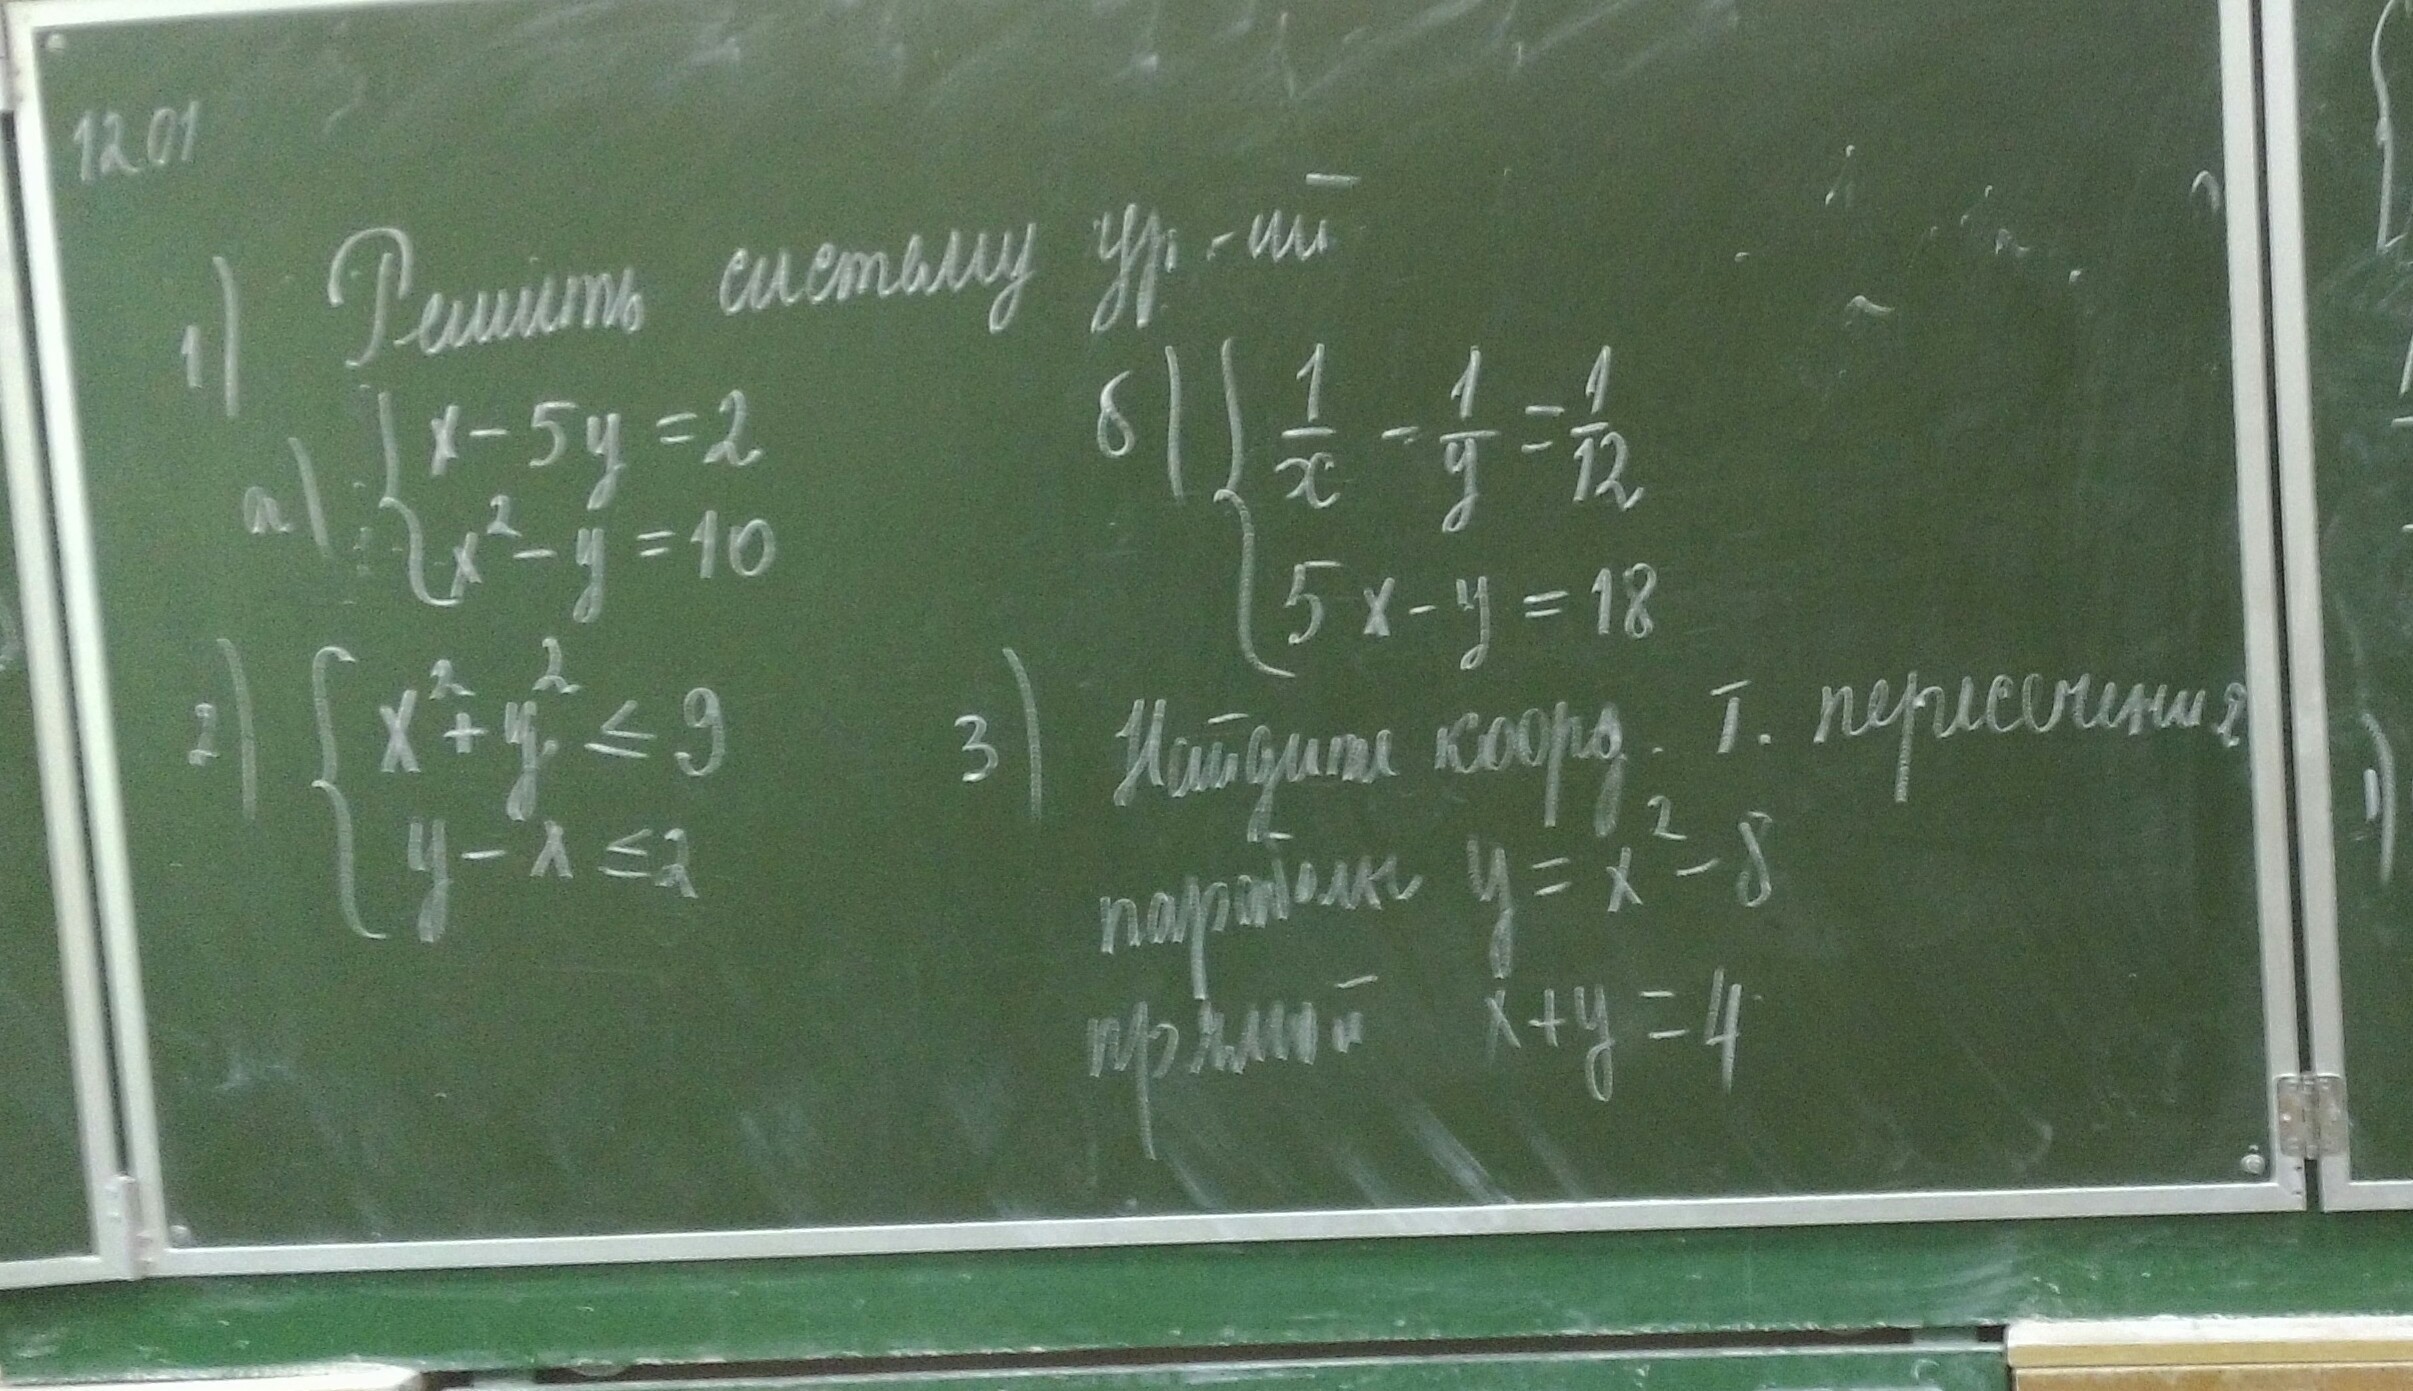 12.01
1) Решить систему ур-ий
а) { x - 5y = 2
x² - y = 10
б) { 1/x - 1/y = 1/12
5x - y = 18
2) { x² + y² ≤ 9
y - x ≤ 2
3) Найдите коорд. т. пересечения
параболы y = x² - 8
прямой x + y = 4
1)